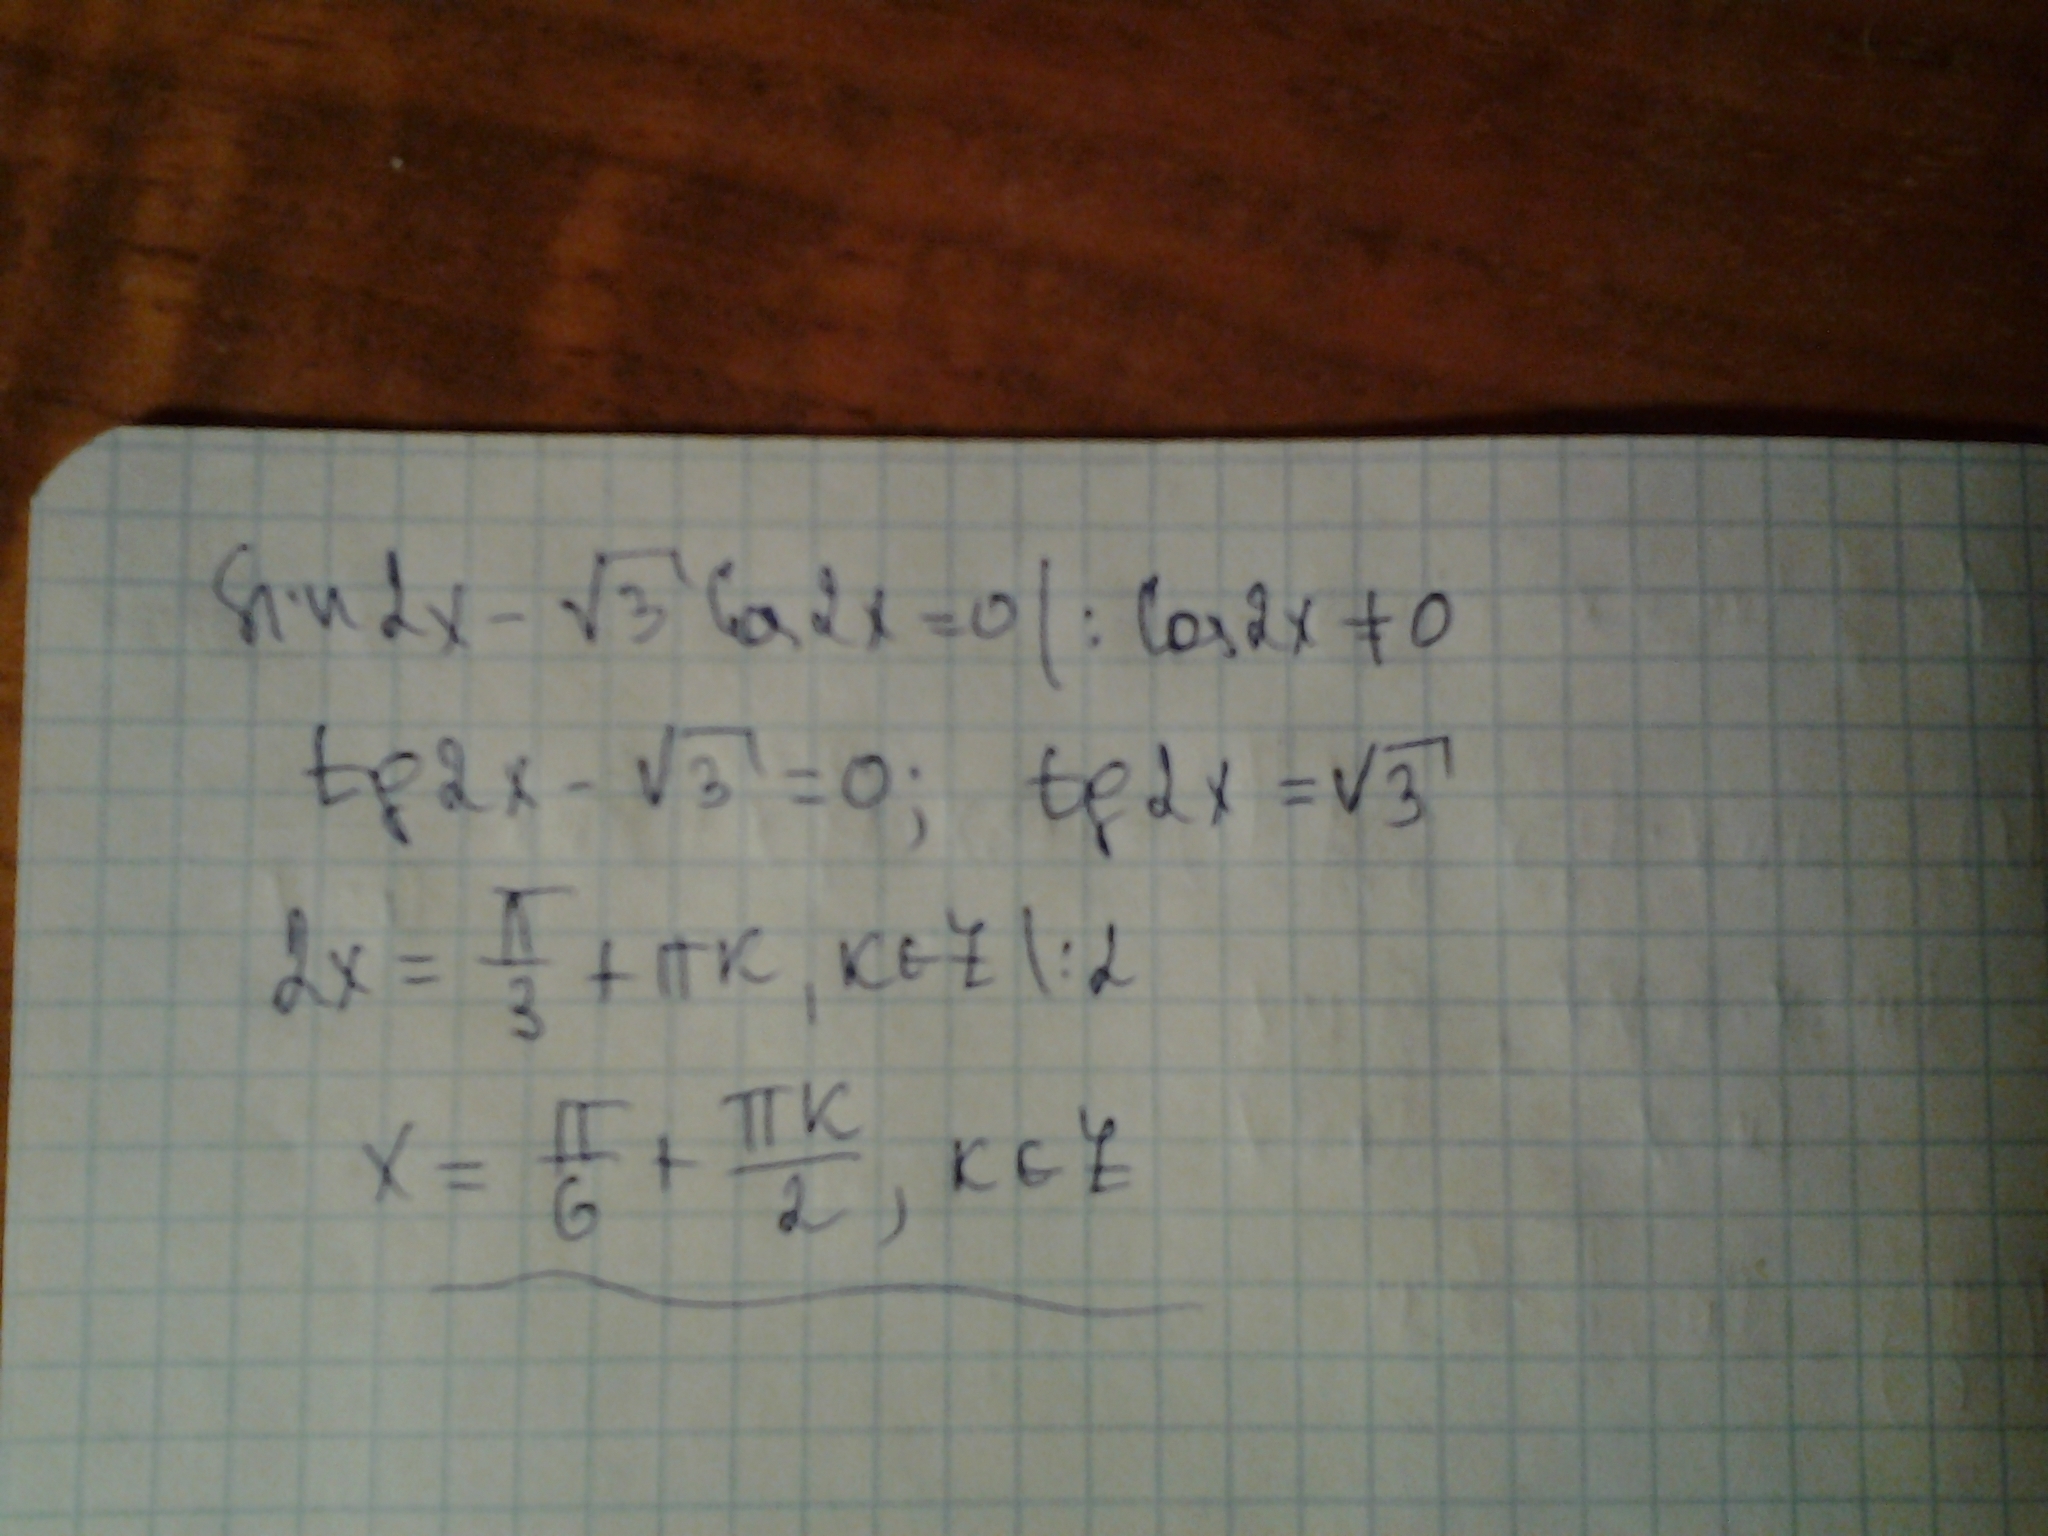 sin2x - √3 cos2x = 0 | : cos2x ≠ 0
tg2x - √3 = 0; tg2x = √3
2x = π/3 + πk, k∈Z |:2
x = π/6 + πk/2, k∈Z